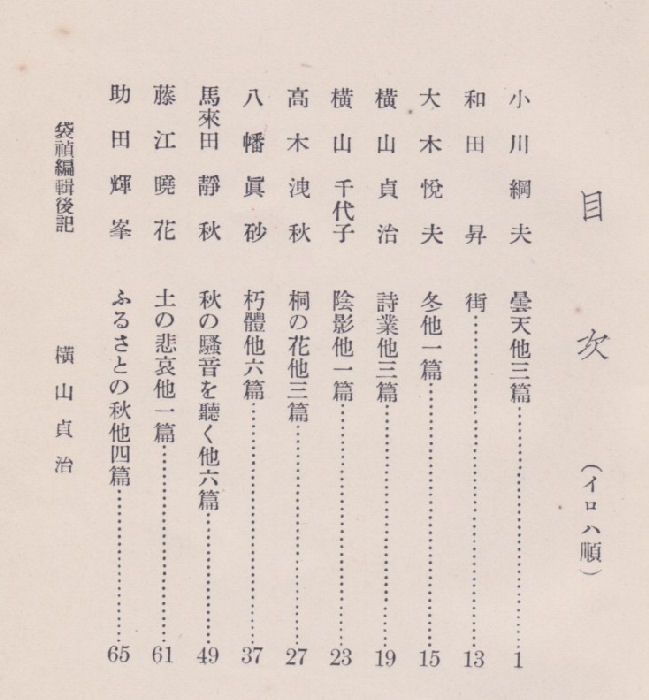 目次 (イロハ順)
小川綱夫 曇天他三篇 1
和田昇 街 13
大木悅夫 冬他一篇 15
橫山貞治 詩業他三篇 19
橫山千代子 陰影他一篇 23
高木洩秋 桐の花他三篇 27
八幡眞砂 朽體他六篇 37
馬來田靜秋 秋の騷音を聽く他六篇 49
藤江曉花 土の悲哀他一篇 61
助田輝峯 ふるさとの秋他四篇 65
裝幀編輯後記 橫山貞治